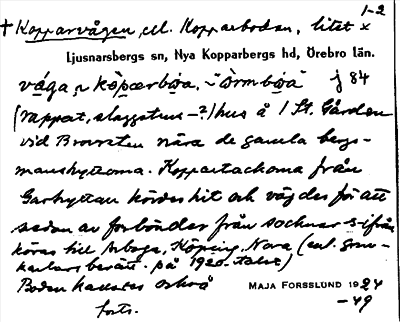 1-2
† Kopparvågen, el. Kopparboden, litet x
Ljusnarsbergs sn, Nya Kopparbergs hd, Örebro län.
j 84
(rappat, slaggstens-?) hus å 1 St. Gården
vid Brovreten nära de gamla bergs-
manshyttorna. Koppartackorna från
Garhyttan kördes hit och vägdes för att
sedan av forbönder från socknar s-ifrån
köras till Arboga, Köping, Nora (enl. grm-
karlars berätt. på 1920-talet)
Boden kallades också
MAJA FORSSLUND 1924
-49
forts.